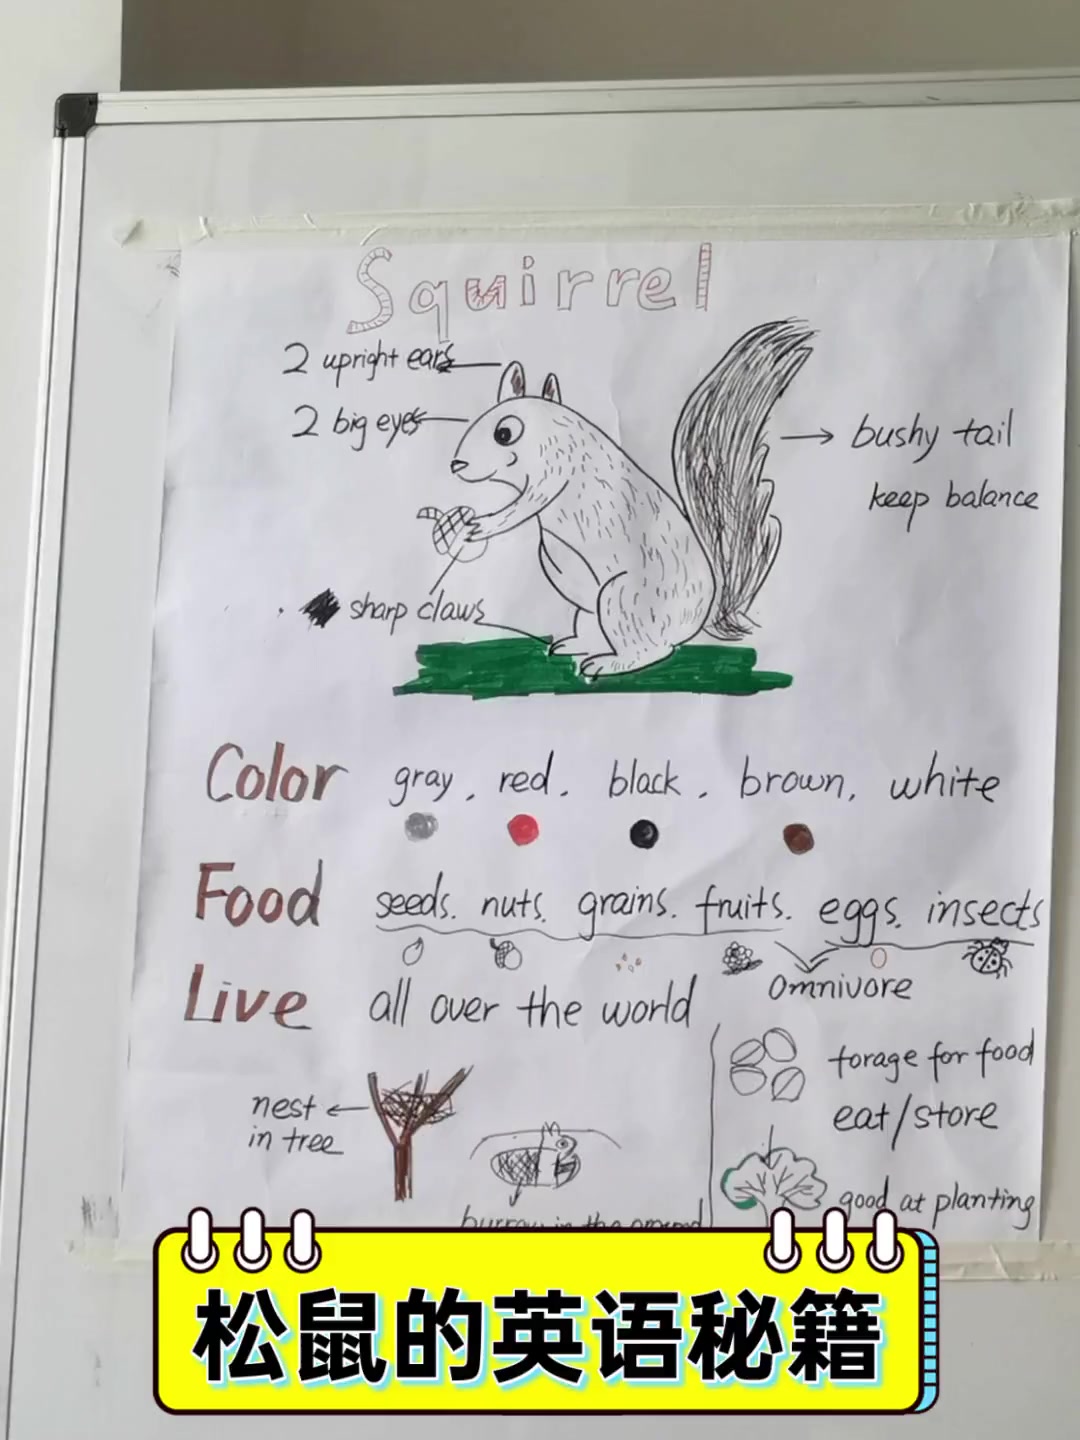 Squirrel
2 upright ears
2 big eyes
bushy tail
keep balance
sharp claws
Color gray, red, black, brown, white
Food seeds, nuts, grains, fruits, eggs, insects
Omnivore
Live all over the world
nest
in tree
burrow in the ground
forage for food
eat/store
good at planting
松鼠的英语秘籍